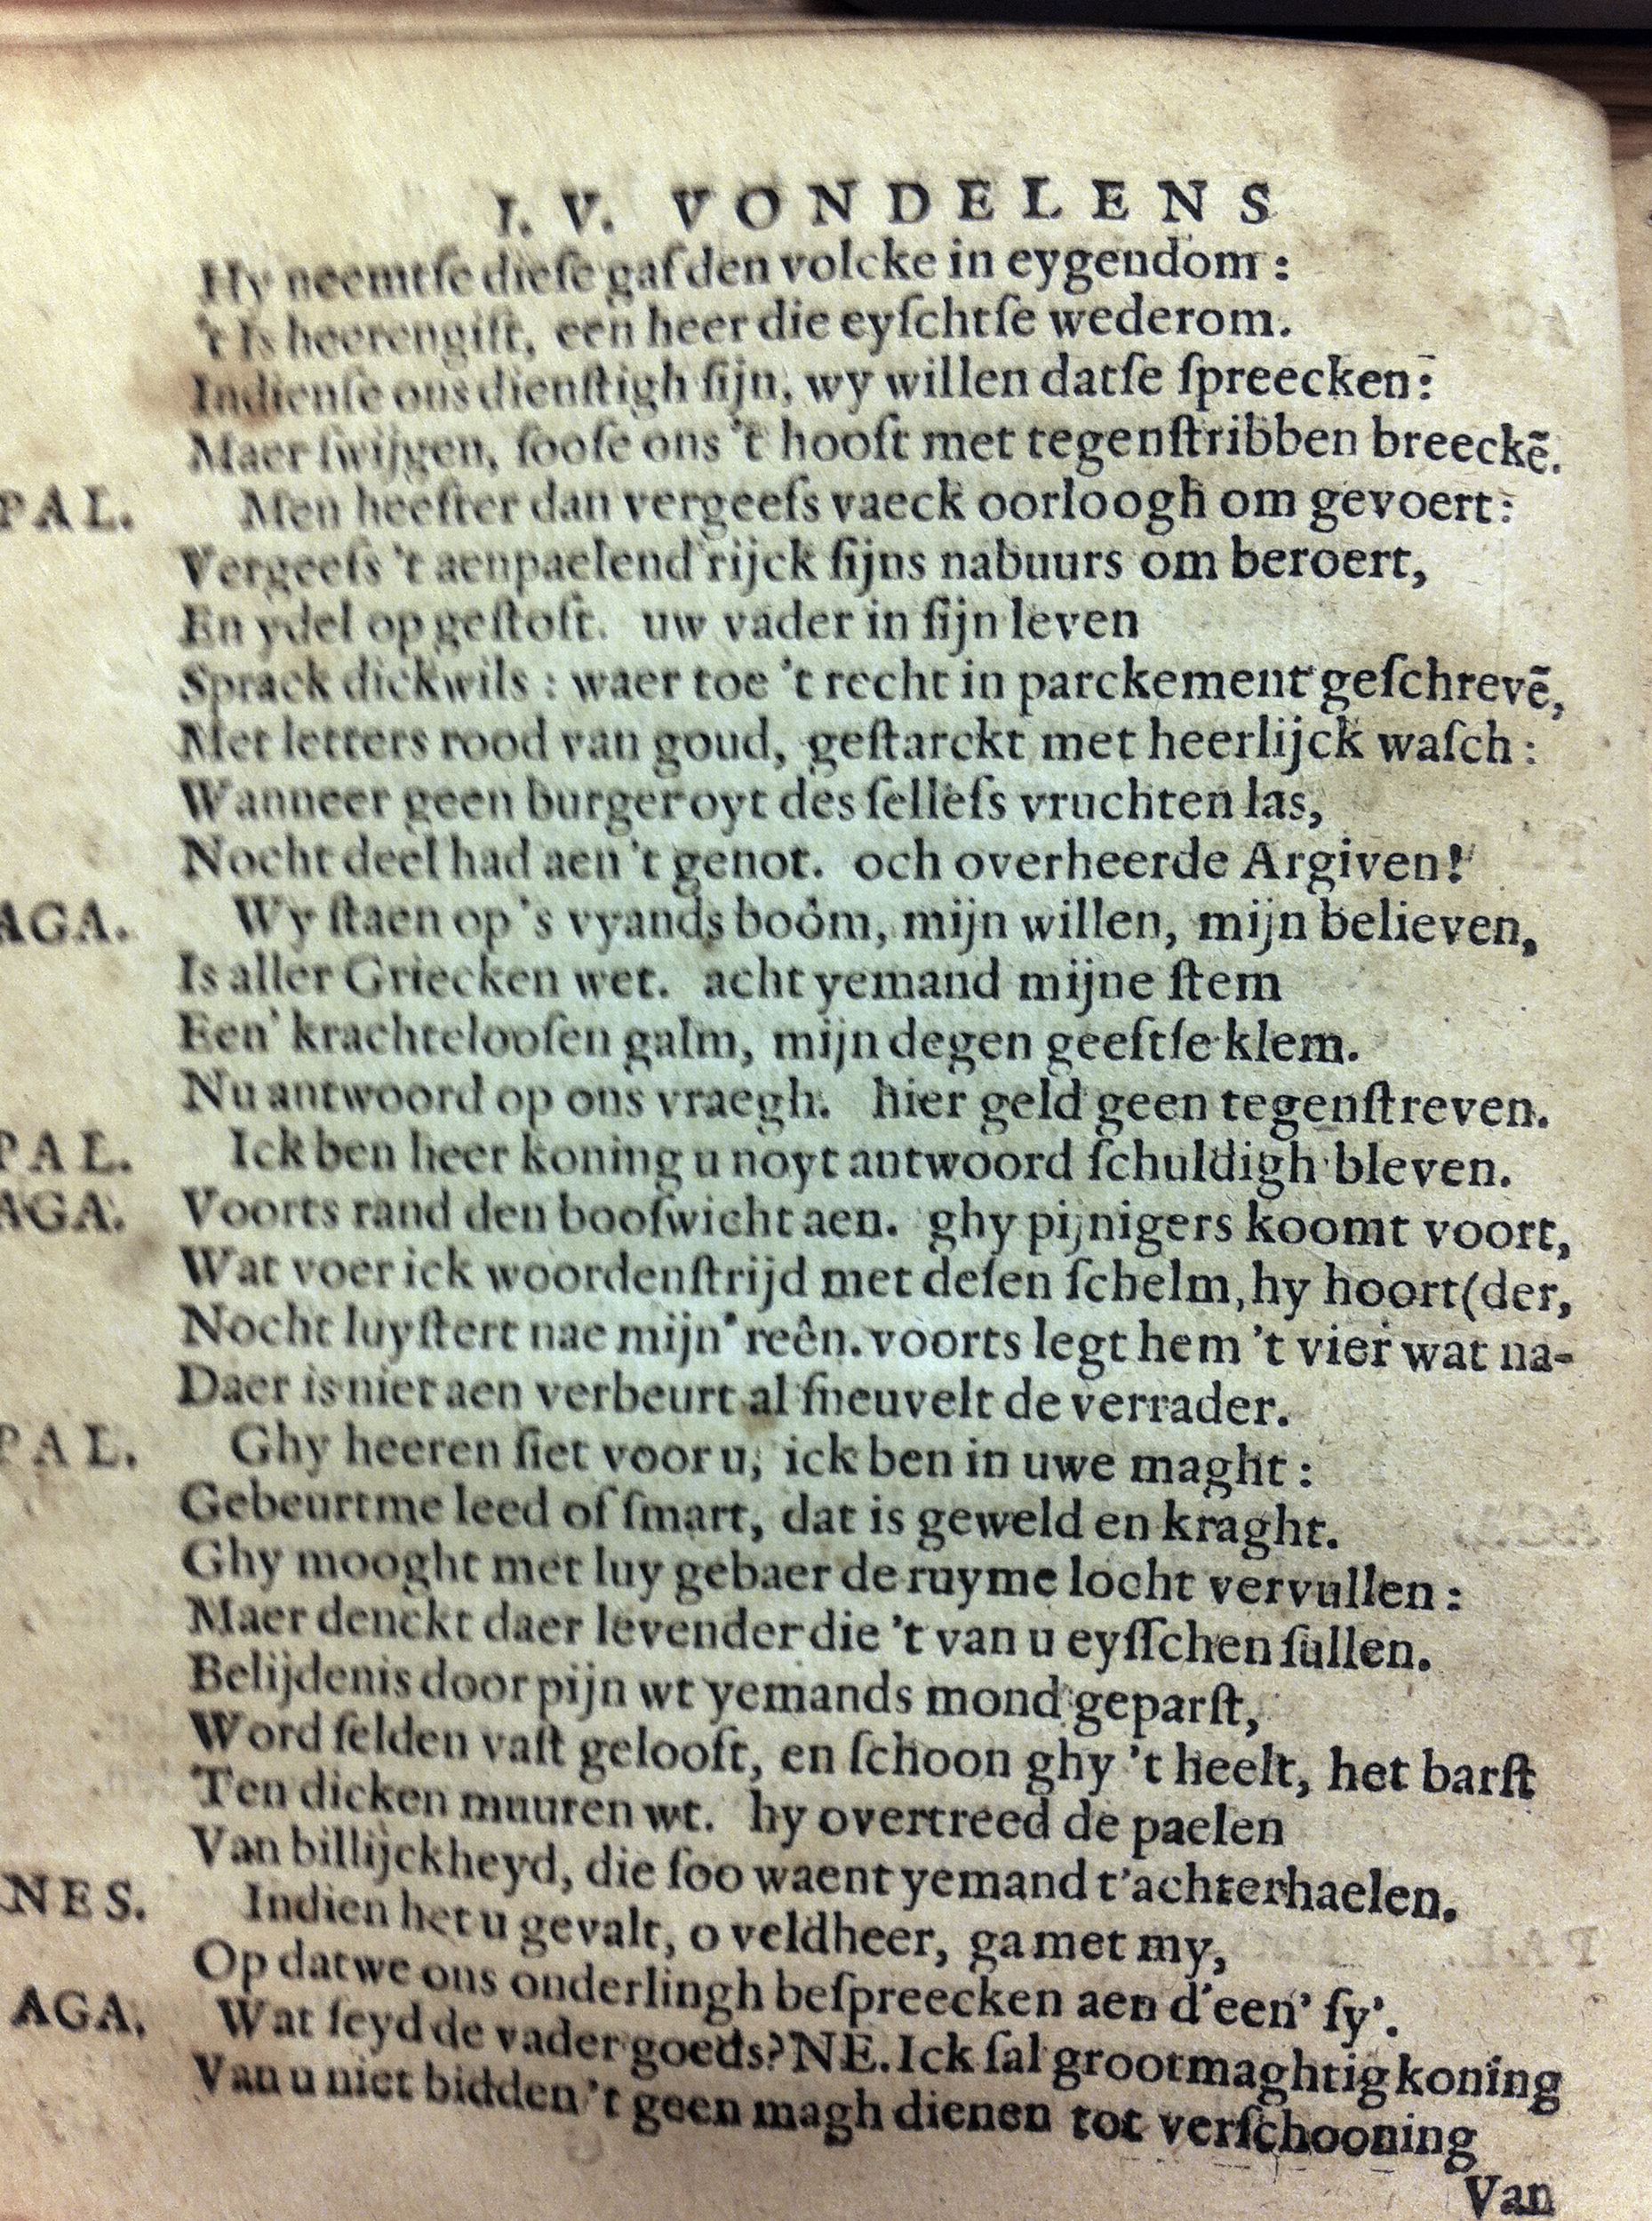 I. V. VONDELENS
Hy neemtſe dieſe gaf den volcke in eygendom:
't Is heerengift, een heer die eyſchtſe wederom.
Indienſe ons dienſtigh ſijn, wy willen datſe ſpreecken:
Maer ſwijgen, ſooſe ons 't hooft met tegenſtribben breeckẽ.
PAL. Men heefter dan vergeefs vaeck oorloogh om gevoert:
Vergeefs 't aenpaelend rijck ſijns nabuurs om beroert,
En ydel op geſtoft. uw vader in ſijn leven
Sprack dickwils: waer toe 't recht in parckement geſchrevẽ,
Met letters rood van goud, geſtarckt met heerlijck waſch:
Wanneer geen burger oyt des ſellefs vruchten las,
Nocht deel had aen 't genot. och overheerde Argiven!
AGA. Wy ſtaen op 's vyands boôm, mijn willen, mijn believen,
Is aller Griecken wet. acht yemand mijne ſtem
Een' krachtelooſen galm, mijn degen geeftſe klem.
Nu antwoord op ons vraegh. hier geld geen tegenſtreven.
PAL. Ick ben heer koning u noyt antwoord ſchuldigh bleven.
AGA. Voorts rand den booſwicht aen. ghy pijnigers koomt voort,
Wat voer ick woordenſtrijd met deſen ſchelm, hy hoort (der,
Nocht luyſtert nae mijn' reên. voorts legt hem 't vier wat na-
Daer is niet aen verbeurt al ſneuvelt de verrader.
PAL. Ghy heeren ſiet voor u, ick ben in uwe maght:
Gebeurtme leed of ſmart, dat is geweld en kraght.
Ghy mooght met luy gebaer de ruyme locht vervullen:
Maer denckt daer levender die 't van u eyſſchen ſullen.
Belijdenis door pijn wt yemands mond geparſt,
Word ſelden vaſt gelooft, en ſchoon ghy 't heelt, het barſt
Ten dicken muuren wt. hy overtreed de paelen
Van billijckheyd, die ſoo waent yemand t'achterhaelen.
NES. Indien het u gevalt, o veldheer, ga met my,
Op datwe ons onderlingh beſpreecken aen d'een' ſy'.
AGA. Wat ſeyd de vader goeds? NE. Ick ſal grootmaghtig koning
Van u niet bidden 't geen magh dienen tot verſchooning
Van